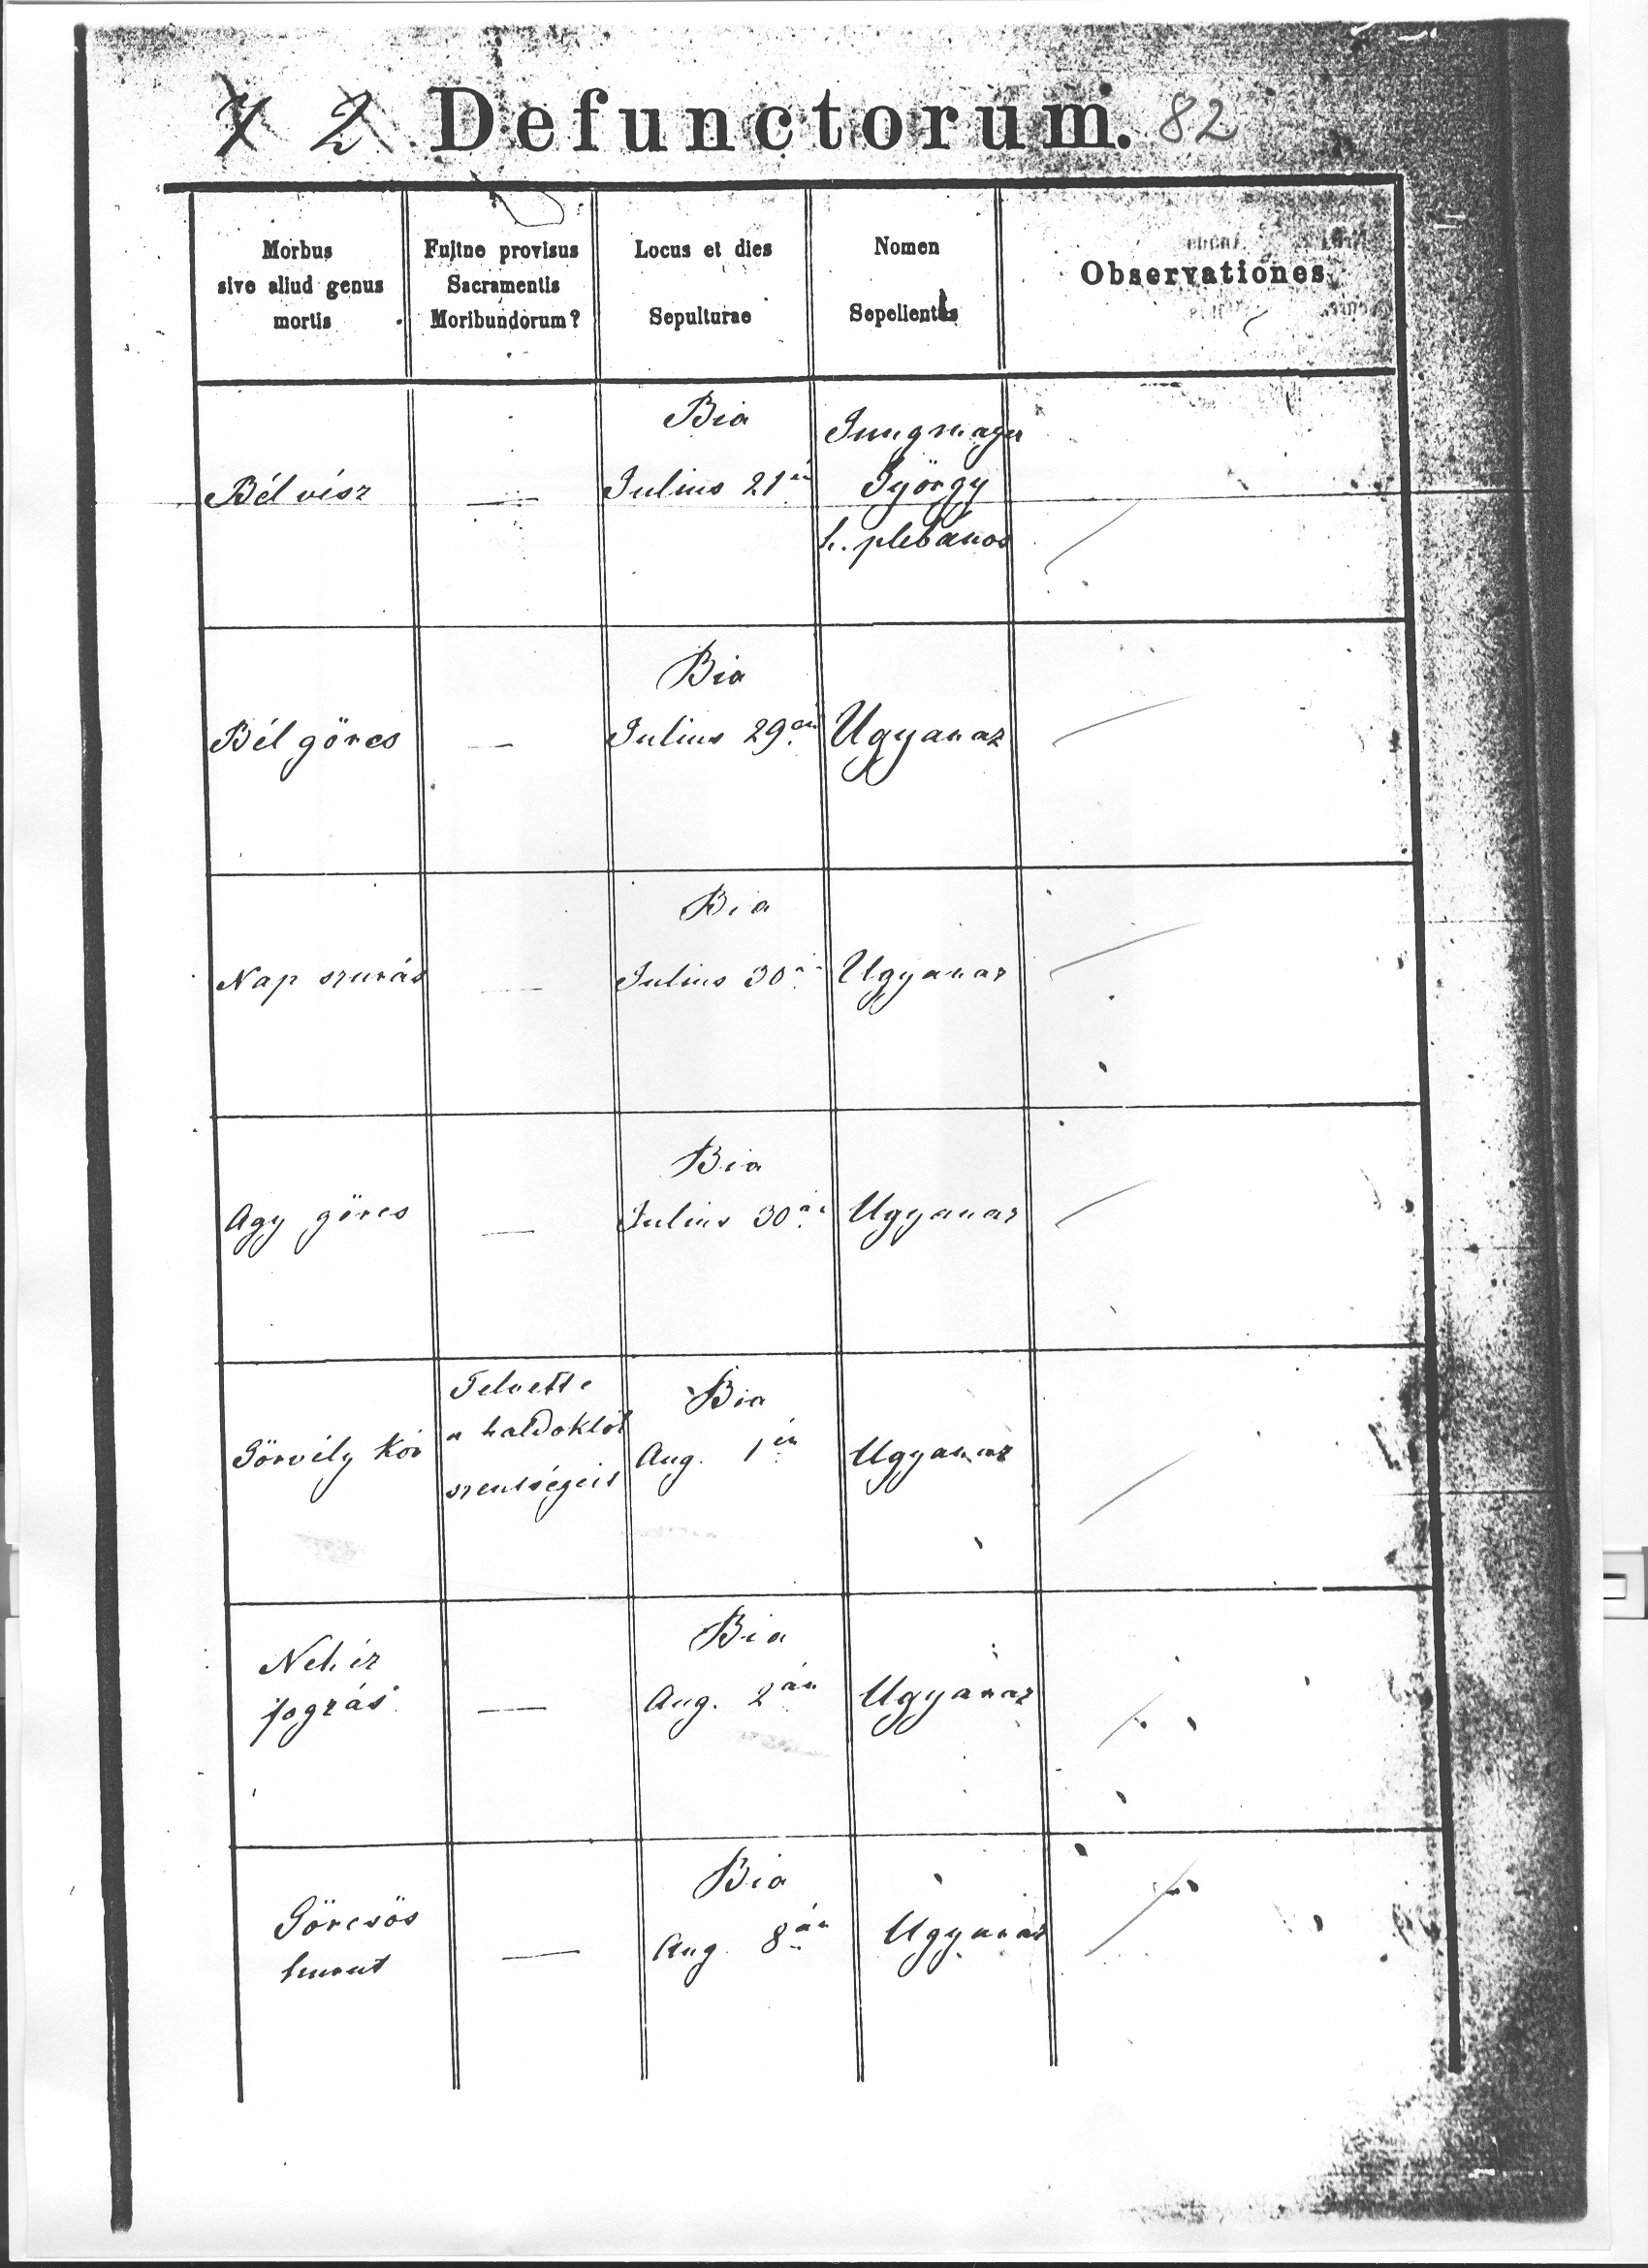 7 2 Defunctorum. 82
Morbus
sive aliud genus
mortis
Fuitne provisus
Sacramentis
Moribundorum?
Locus et dies
Sepulturae
Nomen
Sepelientis
Observationes
Bél vész
—
Bia
Julius 21én
Jungmayer
György
h. plebános
Bél görcs
—
Bia
Julius 29én
Ugyanaz
Nap szurás
—
Bia
Julius 30án
Ugyanaz
Agy görcs
—
Bia
Julius 30án
Ugyanaz
Görvély Kór
Felvette
a haldoklók
szentségeit
Bia
Aug. 1én
Ugyanaz
Nehéz
fogzás
—
Bia
Aug. 2án
Ugyanaz
Görcsös
hurut
—
Bia
Aug 8án
Ugyanaz